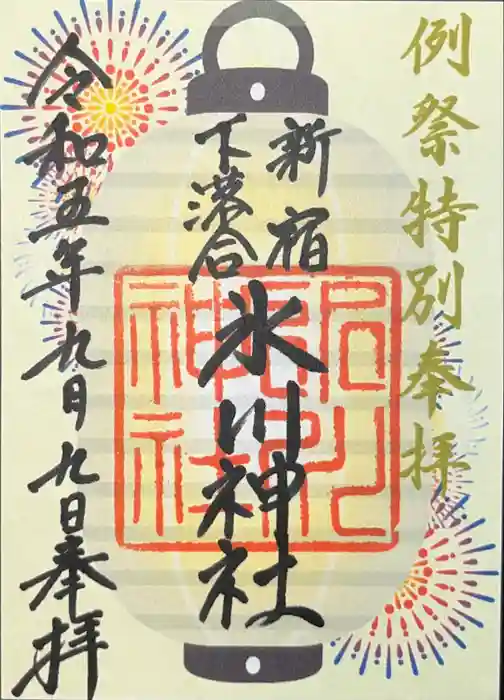 例祭特別奉拝
新宿
下落合
氷川神社
令和五年九月九日奉拝